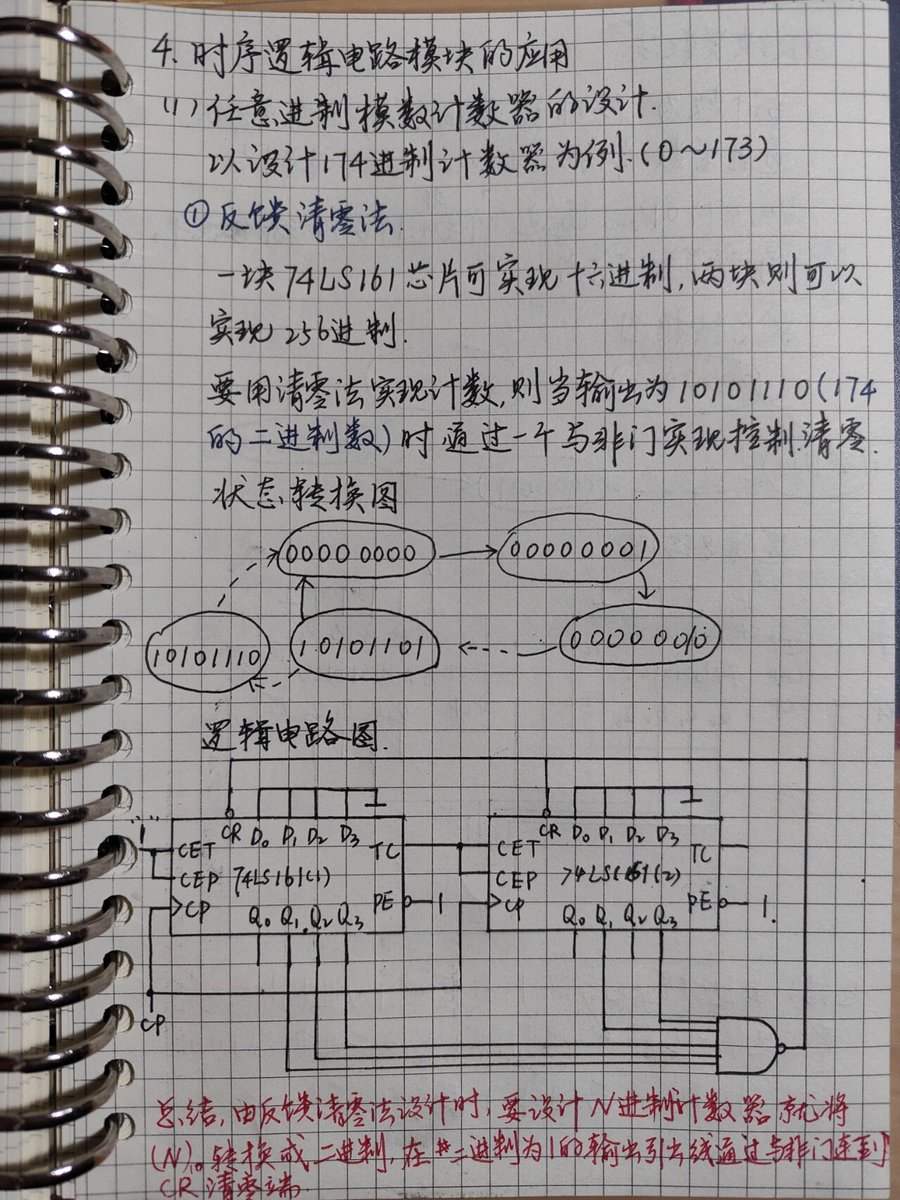 4. 时序逻辑电路模块的应用
(1) 任意进制模数计数器的设计.
以设计174进制计数器为例.(0～173)
①反馈清零法.
一块74LS161芯片可实现十六进制,两块则可以
实现256进制.
要用清零法实现计数,则当输出为10101110(174
的二进制数)时,通过一个与非门实现控制清零.
状态转换图
0000 0000
00000001
10101110
10101101
00000010
逻辑电路图.
"1" CR D₀ D₁ D₂ D₃ CR D₀ D₁ D₂ D₃
CET TC CET TC
CEP 74LS161(1) CEP 74LS161(2)
CP PE 1 CP PE 1.
Q₀ Q₁ Q₂ Q₃ Q₀ Q₁ Q₂ Q₃
CP
总结,由反馈清零法设计时,要设计N进制计数器,就将
(N)₁₀转换成二进制,在二进制为1的输出引出线通过与非门连到
CR清零端